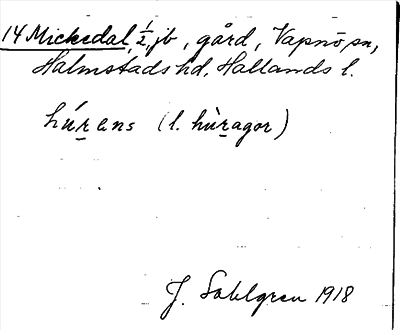 14 Mickedal, 1/2, jb, gård, Vapnö sn,
Halmstads hd, Hallands l.
húrens (l. hùragor)
J. Sahlgren 1918